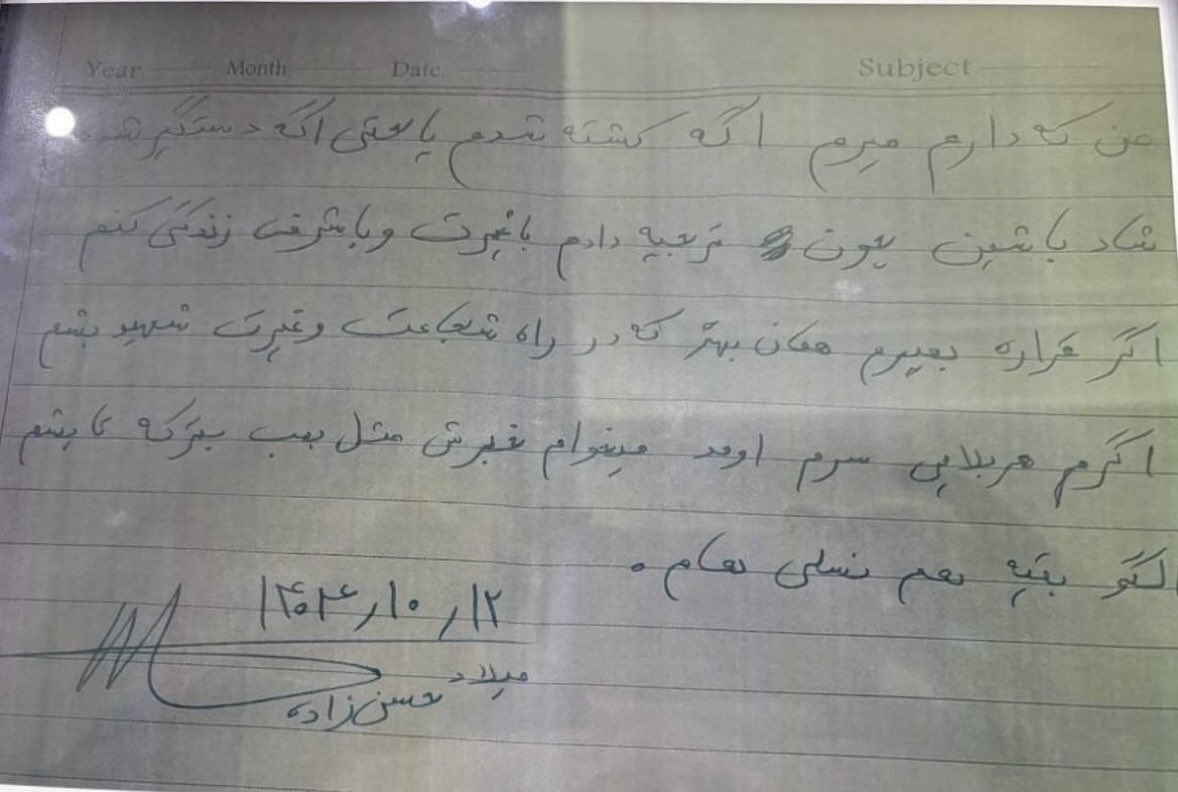 Year Month. Date. Subject
من که دارم میرم اگه کشته شدم یا حتی اگه دستگیر شدم
شاد باشین چون ترجیه دادم باغیرت وباشرف زندگی کنم
اگر قراره بمیرم همان بهتر که در راه شجاعت و غیرت شهید بشم
اگرم هربلایی سرم اومد میخوام خبرش مثل بمب بترکه تا بشم
الگو بقیه هم نسلی هام.
۱۴۰۴/۱۰/۱۲
میلاد
حسن زاده